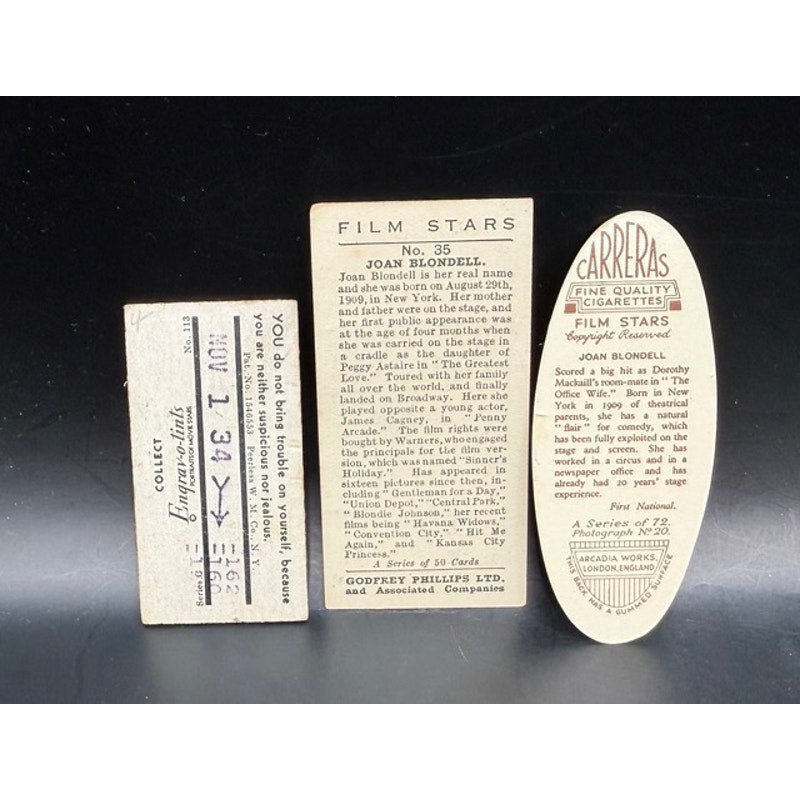 4
COLLECT
Engrav-o-tints
PORTRAITS OF MOVIE STARS
No. 113
NOV 1 34
=162
=160
YOU do not bring trouble on yourself, because
you are neither suspicious nor jealous.
Pat. No. 1546553 Peerless W. M. Co., N. Y.
FILM STARS
No. 35
JOAN BLONDELL.
Joan Blondell is her real name
and she was born on August 29th,
1909, in New York. Her mother
and father were on the stage, and
her first public appearance was
at the age of four months when
she was carried on the stage in
a cradle as the daughter of
Peggy Astaire in "The Greatest
Love." Toured with her family
all over the world, and finally
landed on Broadway. Here she
played opposite a young actor,
James Cagney, in "Penny
Arcade." The film rights were
bought by Warners, who engaged
the principals for the film ver-
sion, which was named "Sinner's
Holiday." Has appeared in
sixteen pictures since then, in-
cluding "Gentleman for a Day,"
"Union Depot," "Central Park,"
"Blondie Johnson," her recent
films being "Havana Widows,"
"Convention City," "Hit Me
Again," and "Kansas City
Princess."
A Series of 50 Cards
GODFREY PHILLIPS LTD.
and Associated Companies
CARRERAS
FINE QUALITY
CIGARETTES
FILM STARS
Copyright Reserved
JOAN BLONDELL
Scored a big hit as Dorothy
Mackaill's room-mate in "The
Office Wife." Born in New
York in 1909 of theatrical
parents, she has a natural
"flair" for comedy, which
has been fully exploited on the
stage and screen. She has
worked in a circus and in a
newspaper office and has
already had 20 years' stage
experience.
First National.
A Series of 72.
Photograph No 20.
ARCADIA WORKS,
LONDON, ENGLAND.
THIS BACK HAS A GUMMED SURFACE